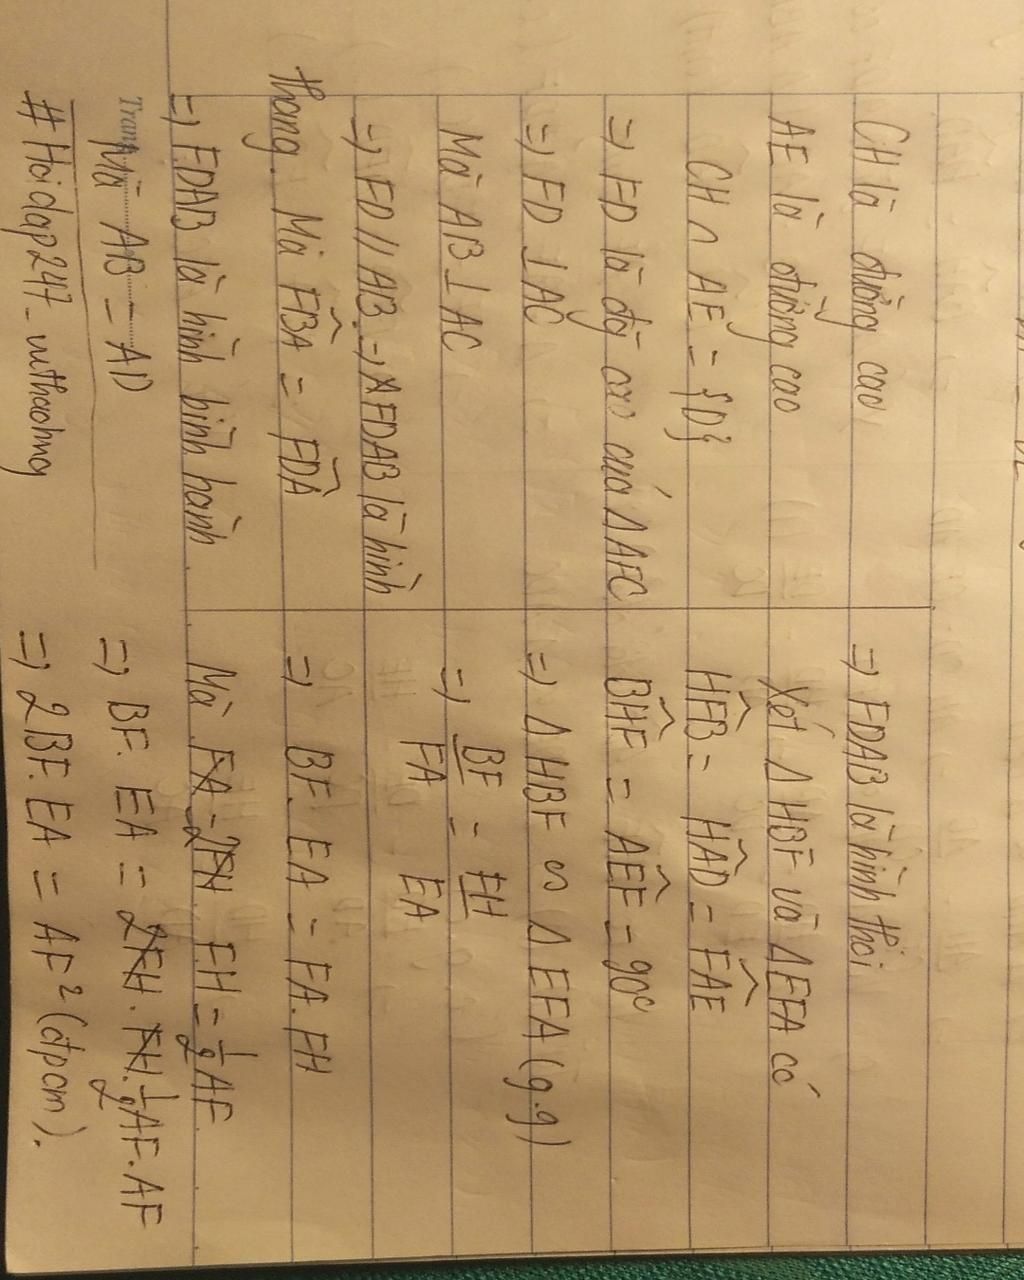 CH là đường cao
AE là đường cao
CH ∩ AE = {D}
=) FD là đg cao của Δ AFC
=) FD ⊥ AC
Mà AB ⊥ AC
=) FD // AB =) FDAB là hình
thang. Mà FBA = FDA
=) FDAB là hình bình hành
Trang Mà AB = AD
# Hoidap247_vuthaohng
=) FDAB là hình thoi
Xét Δ HBF và Δ EFA có
HFB = HAD = FAE
BHF = AEF = 90°
=) Δ HBF ∽ Δ EFA (g.g)
=) BF/FA = FH/EA
=) BF. EA = FA. FH
Mà FH = 1/2 AF
=) BF. EA = 1/2 AF. AF
=) 2BF. EA = AF² (đpcm).